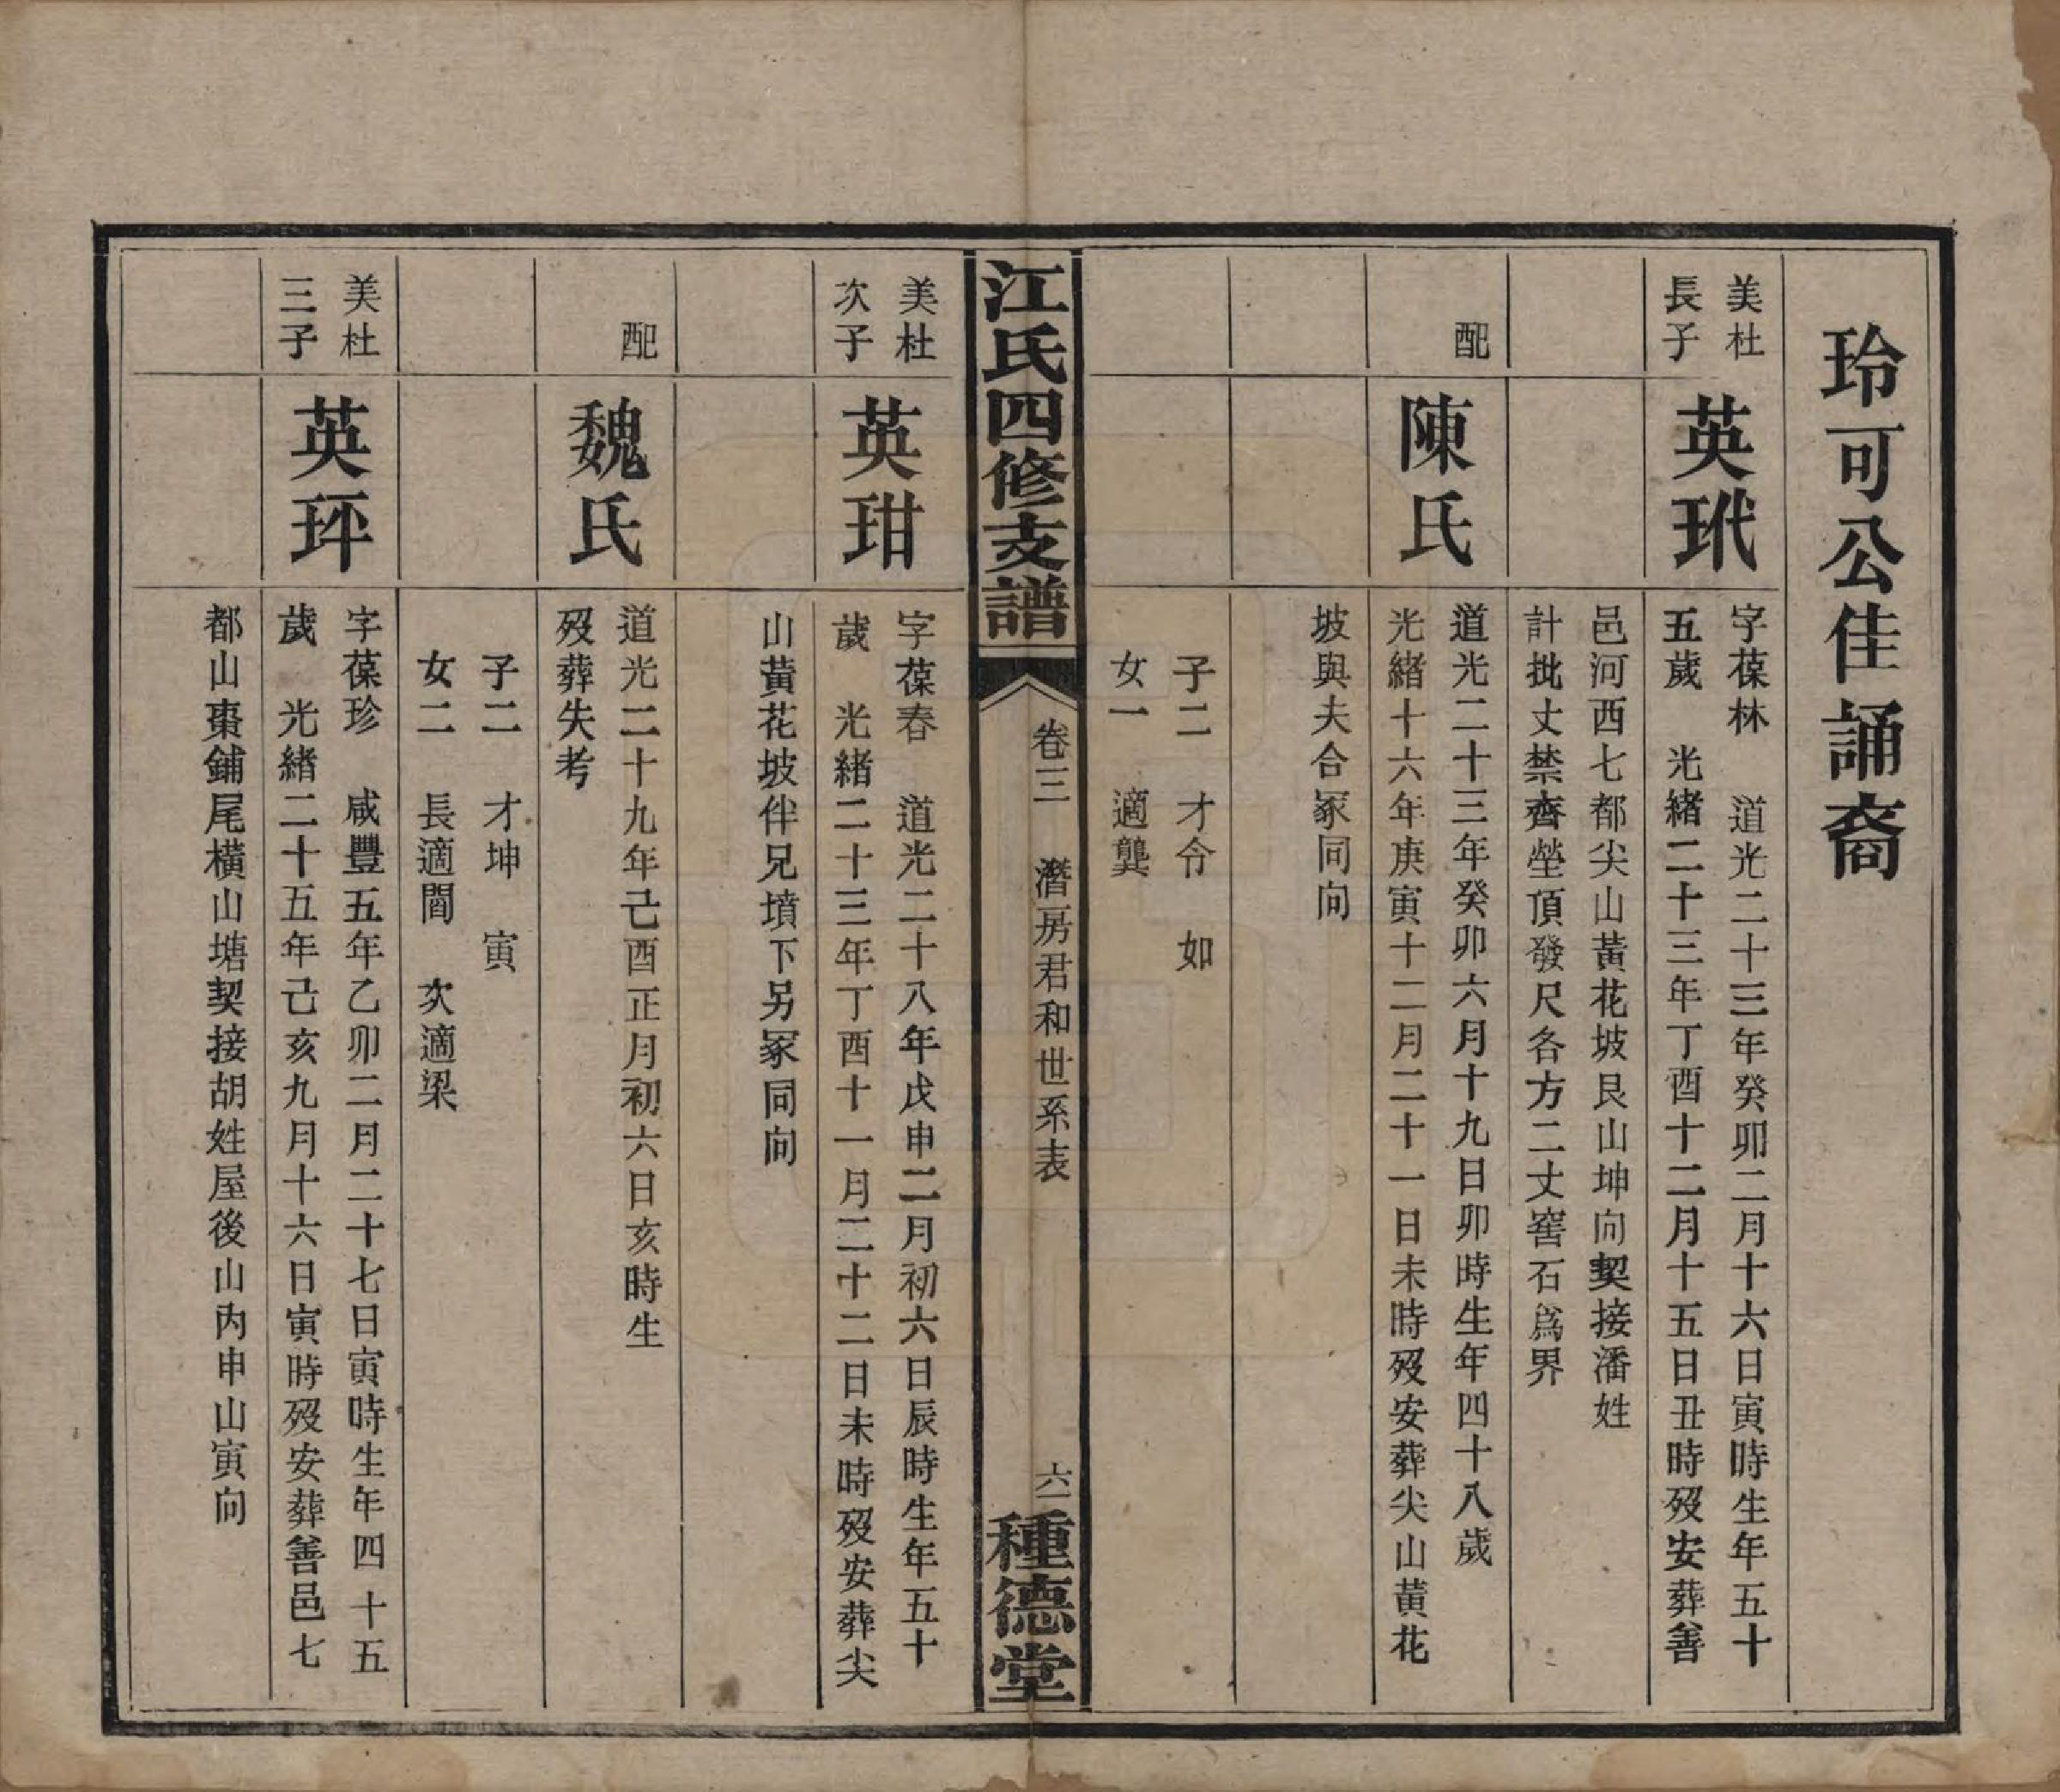 玲可公佳誦裔
美杜
長子
英玳
字葆林　道光二十三年癸卯二月十六日寅時生年五十
五歲　光緒二十三年丁酉十二月十五日丑時歿安葬善
邑河西七都尖山黃花坡艮山坤向契接潘姓
計批丈禁齊塋頂發尺各方二丈窖石爲界
配
陳氏
道光二十三年癸卯六月十九日卯時生年四十八歲
光緒十六年庚寅十二月二十一日未時歿安葬尖山黃花
坡與夫合冢同向
子二　才令　如
女一　適龔
江氏四修支譜
卷三　潛房君和世系表
六一
種德堂
美杜
次子
英玵
字葆春　道光二十八年戊申二月初六日辰時生年五十
歲　光緒二十三年丁酉十一月二十二日未時歿安葬尖
山黃花坡伴兄墳下另冢同向
配
魏氏
道光二十九年己酉正月初六日亥時生
歿葬失考
子二　才坤　寅
女二　長適閻　次適梁
美杜
三子
英玶
字葆珍　咸豐五年乙卯二月二十七日寅時生年四十五
歲　光緒二十五年己亥九月十六日寅時歿安葬善邑七
都山棗鋪尾橫山塘契接胡姓屋後山內申山寅向